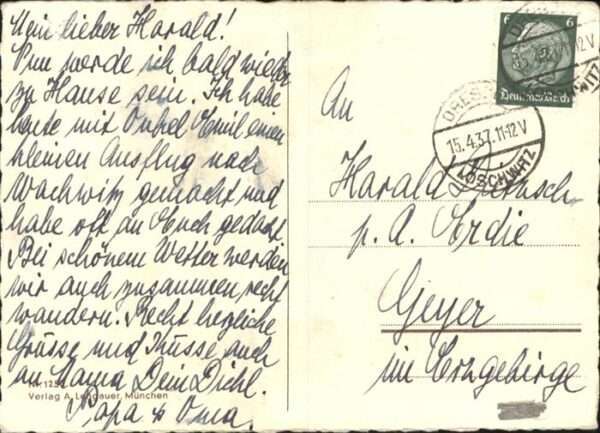 Mein lieber Harald!
Nun werde ich bald wieder
zu Hause sein. Ich habe
heute mit Onkel Emil einen
kleinen Ausflug nach
Wachwitz gemacht und
habe oft an Euch gedacht.
Bei schönem Wetter werden
wir auch zusammen recht
wandern. Recht herzliche
Grüsse und Küsse auch
an Mama Dein Dichl.
Papa & Oma.
Verlag A. Lengauer, München
6 6
Deutsches Reich
DRESDEN
15.4.37.11-12V
LOSCHWITZ
An
Harald
p. A. Erdie
Geyer
im Erzgebirge